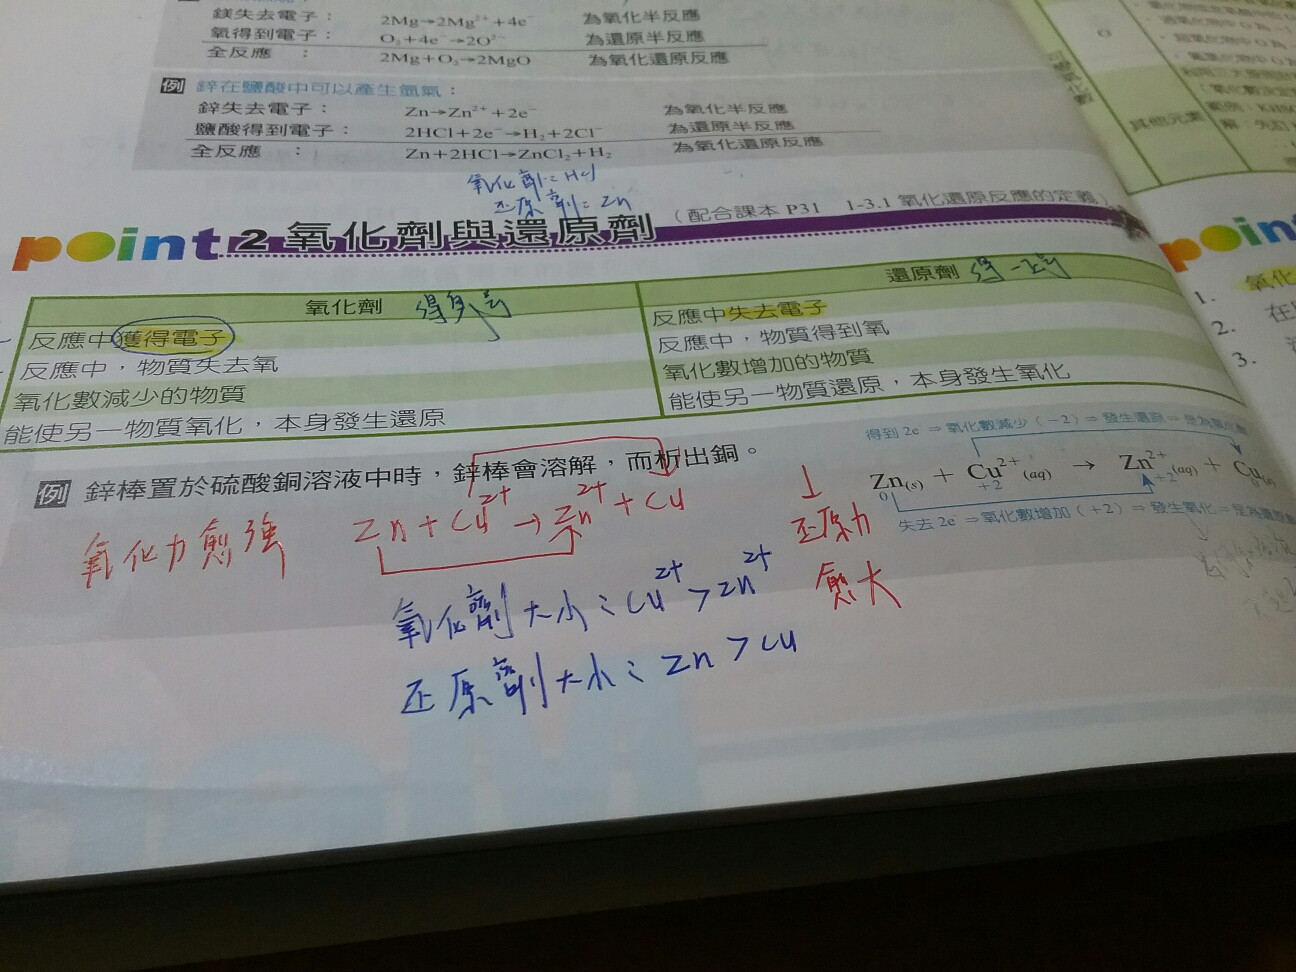 鎂失去電子： 2Mg→2Mg²⁺+4e⁻ 為氧化半反應
氧得到電子： O₂+4e⁻→2O²⁻ 為還原半反應
全反應 ： 2Mg+O₂→2MgO 為氧化還原反應
例 鋅在鹽酸中可以產生氫氣：
鋅失去電子： Zn→Zn²⁺+2e⁻ 為氧化半反應
鹽酸得到電子： 2HCl+2e⁻→H₂+2Cl⁻ 為還原半反應
全反應 ： Zn+2HCl→ZnCl₂+H₂ 為氧化還原反應
氧化劑：HCl
还原劑：Zn
point 2 氧化劑與還原劑 （配合課本 P31 1-3.1 氧化還原反應的定義）
氧化劑
反應中獲得電子
反應中，物質失去氧
氧化數減少的物質
能使另一物質氧化，本身發生還原
還原劑
反應中失去電子
反應中，物質得到氧
氧化數增加的物質
能使另一物質還原，本身發生氧化
例 鋅棒置於硫酸銅溶液中時，鋅棒會溶解，而析出銅。
得到 2e⁻ ⇒ 氧化數減少（−2）⇒ 發生還原 ⇒ 是為氧化
Zn(s) + Cu²⁺(aq) → Zn²⁺(aq) + Cu(s)
0 +2 +2 0
失去 2e⁻ ⇒ 氧化數增加（+2）⇒ 發生氧化 ⇒ 是為還原
氧化力愈強
Zn + Cu²⁺ → Zn²⁺ + Cu
↓
还原力
愈大
氧化劑大小：Cu²⁺ > Zn²⁺
还原劑大小：Zn > Cu
其他元素
point
1. 氧化
2. 在
3.